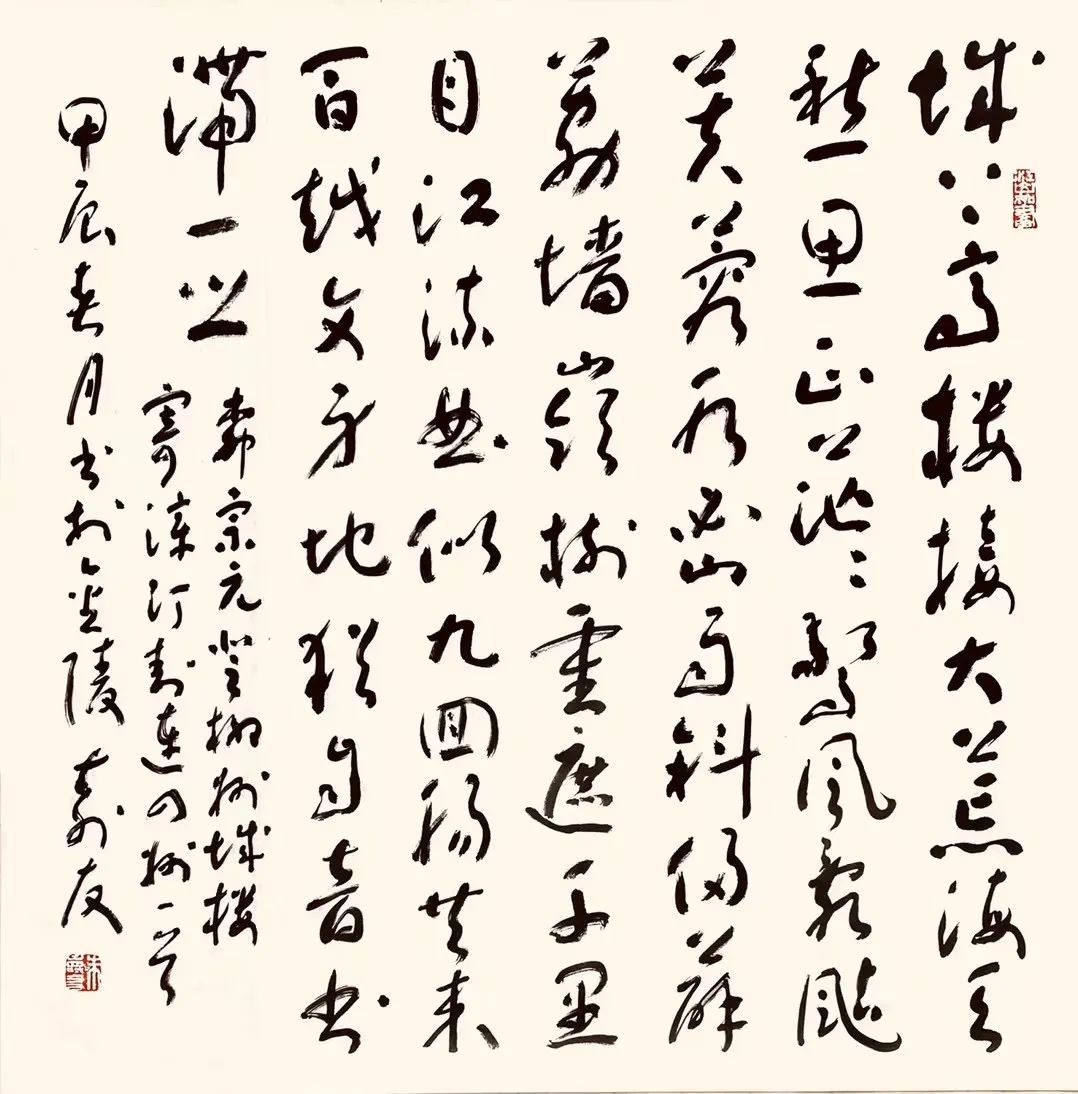 城上高楼接大荒海天
愁思正茫々驚風亂颭
芙蓉水密雨斜侵薜
荔墙嶺樹重遮千里
目江流曲似九回腸共来
百越文身地猶自音书
滞一乡
柳宗元登柳州城楼
寄漳汀封連四州一首
甲辰春月书於金陵寿友